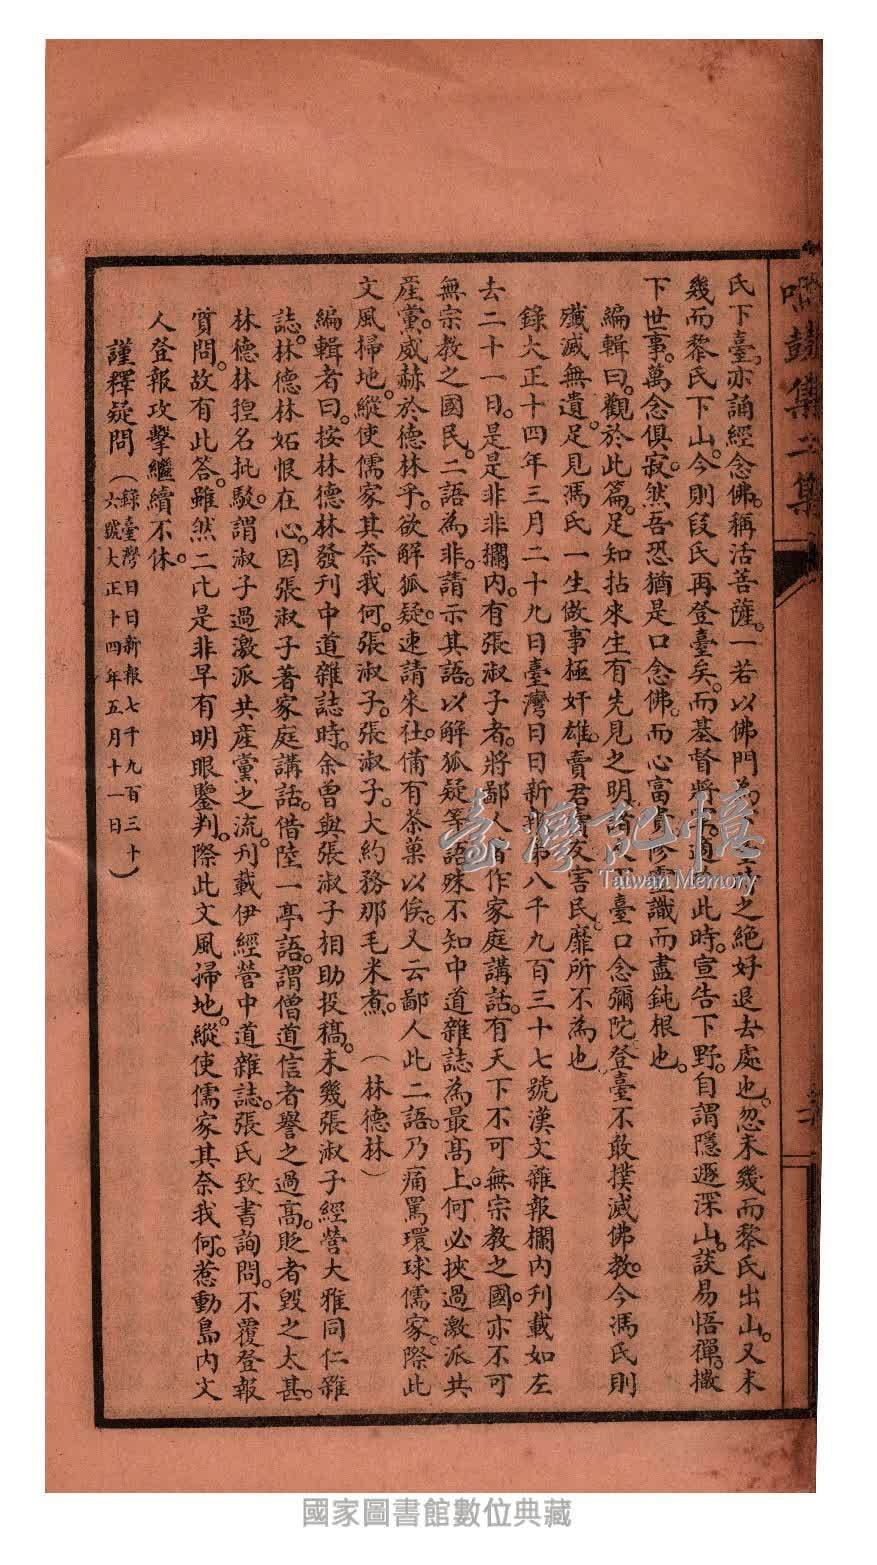 鳴鼓集二集
氏下臺。亦誦經念佛。稱活菩薩。一若以佛門為之絶好退去處也。忽未幾而黎氏出山。又未
幾而黎氏下山。今則段氏再登臺矣。而基督將軍。適此時。宣告下野。自謂隱遯深山。談易悟禪。撇
下世事。萬念俱寂。然吾恐猶是口念佛。而心富貴。識而盡鈍根也。
編輯曰。觀於此篇。足知拈來生有先見之明。臺口念彌陀登臺不敢撲滅佛教。今馮氏則
殲滅無遺。足見馮氏一生做事極奸雄。賣君賣友害民靡所不為也
錄大正十四年三月二十九日臺灣日日新報第八千九百三十七號漢文雜報欄內刊載如左
去二十一日。是是非非欄內。有張淑子者。將鄙人省作家庭講話。有天下不可無宗教之國。亦不可
無宗教之國民。二語為非。請示其語。以解狐疑等語。殊不知中道雜誌為最高上。何必挾過激派共
產黨。威赫於德林乎。欲解狐疑。速請來社。備有茶菓以俟。又云鄙人此二語。乃痛罵環球儒家。際此
文風掃地。縱使儒家其奈我何。張淑子。張淑子。大約務那毛米煮。（林德林）
編輯者曰。按林德林發刊中道雜誌時。余曾與張淑子相助投稿。未幾張淑子經營大雅同仁雜
誌。林德林妬恨在心。因張淑子著家庭講話。借陸一亭語。謂僧道信者譽之過高。貶者毀之太甚。
林德林捏名批駁。謂淑子過激派共産黨之流。刊載伊經營中道雜誌。張氏致書詢問。不覆登報
質問。故有此答。雖然二比是非早有明眼鑒判。際此文風掃地。縱使儒家其奈我何。惹動島內文
人登報攻擊繼續不休。
謹釋疑問（錄臺灣日日新報七千九百三十六號大正十四年五月十一日）
臺灣記憶
Taiwan Memory
國家圖書館數位典藏